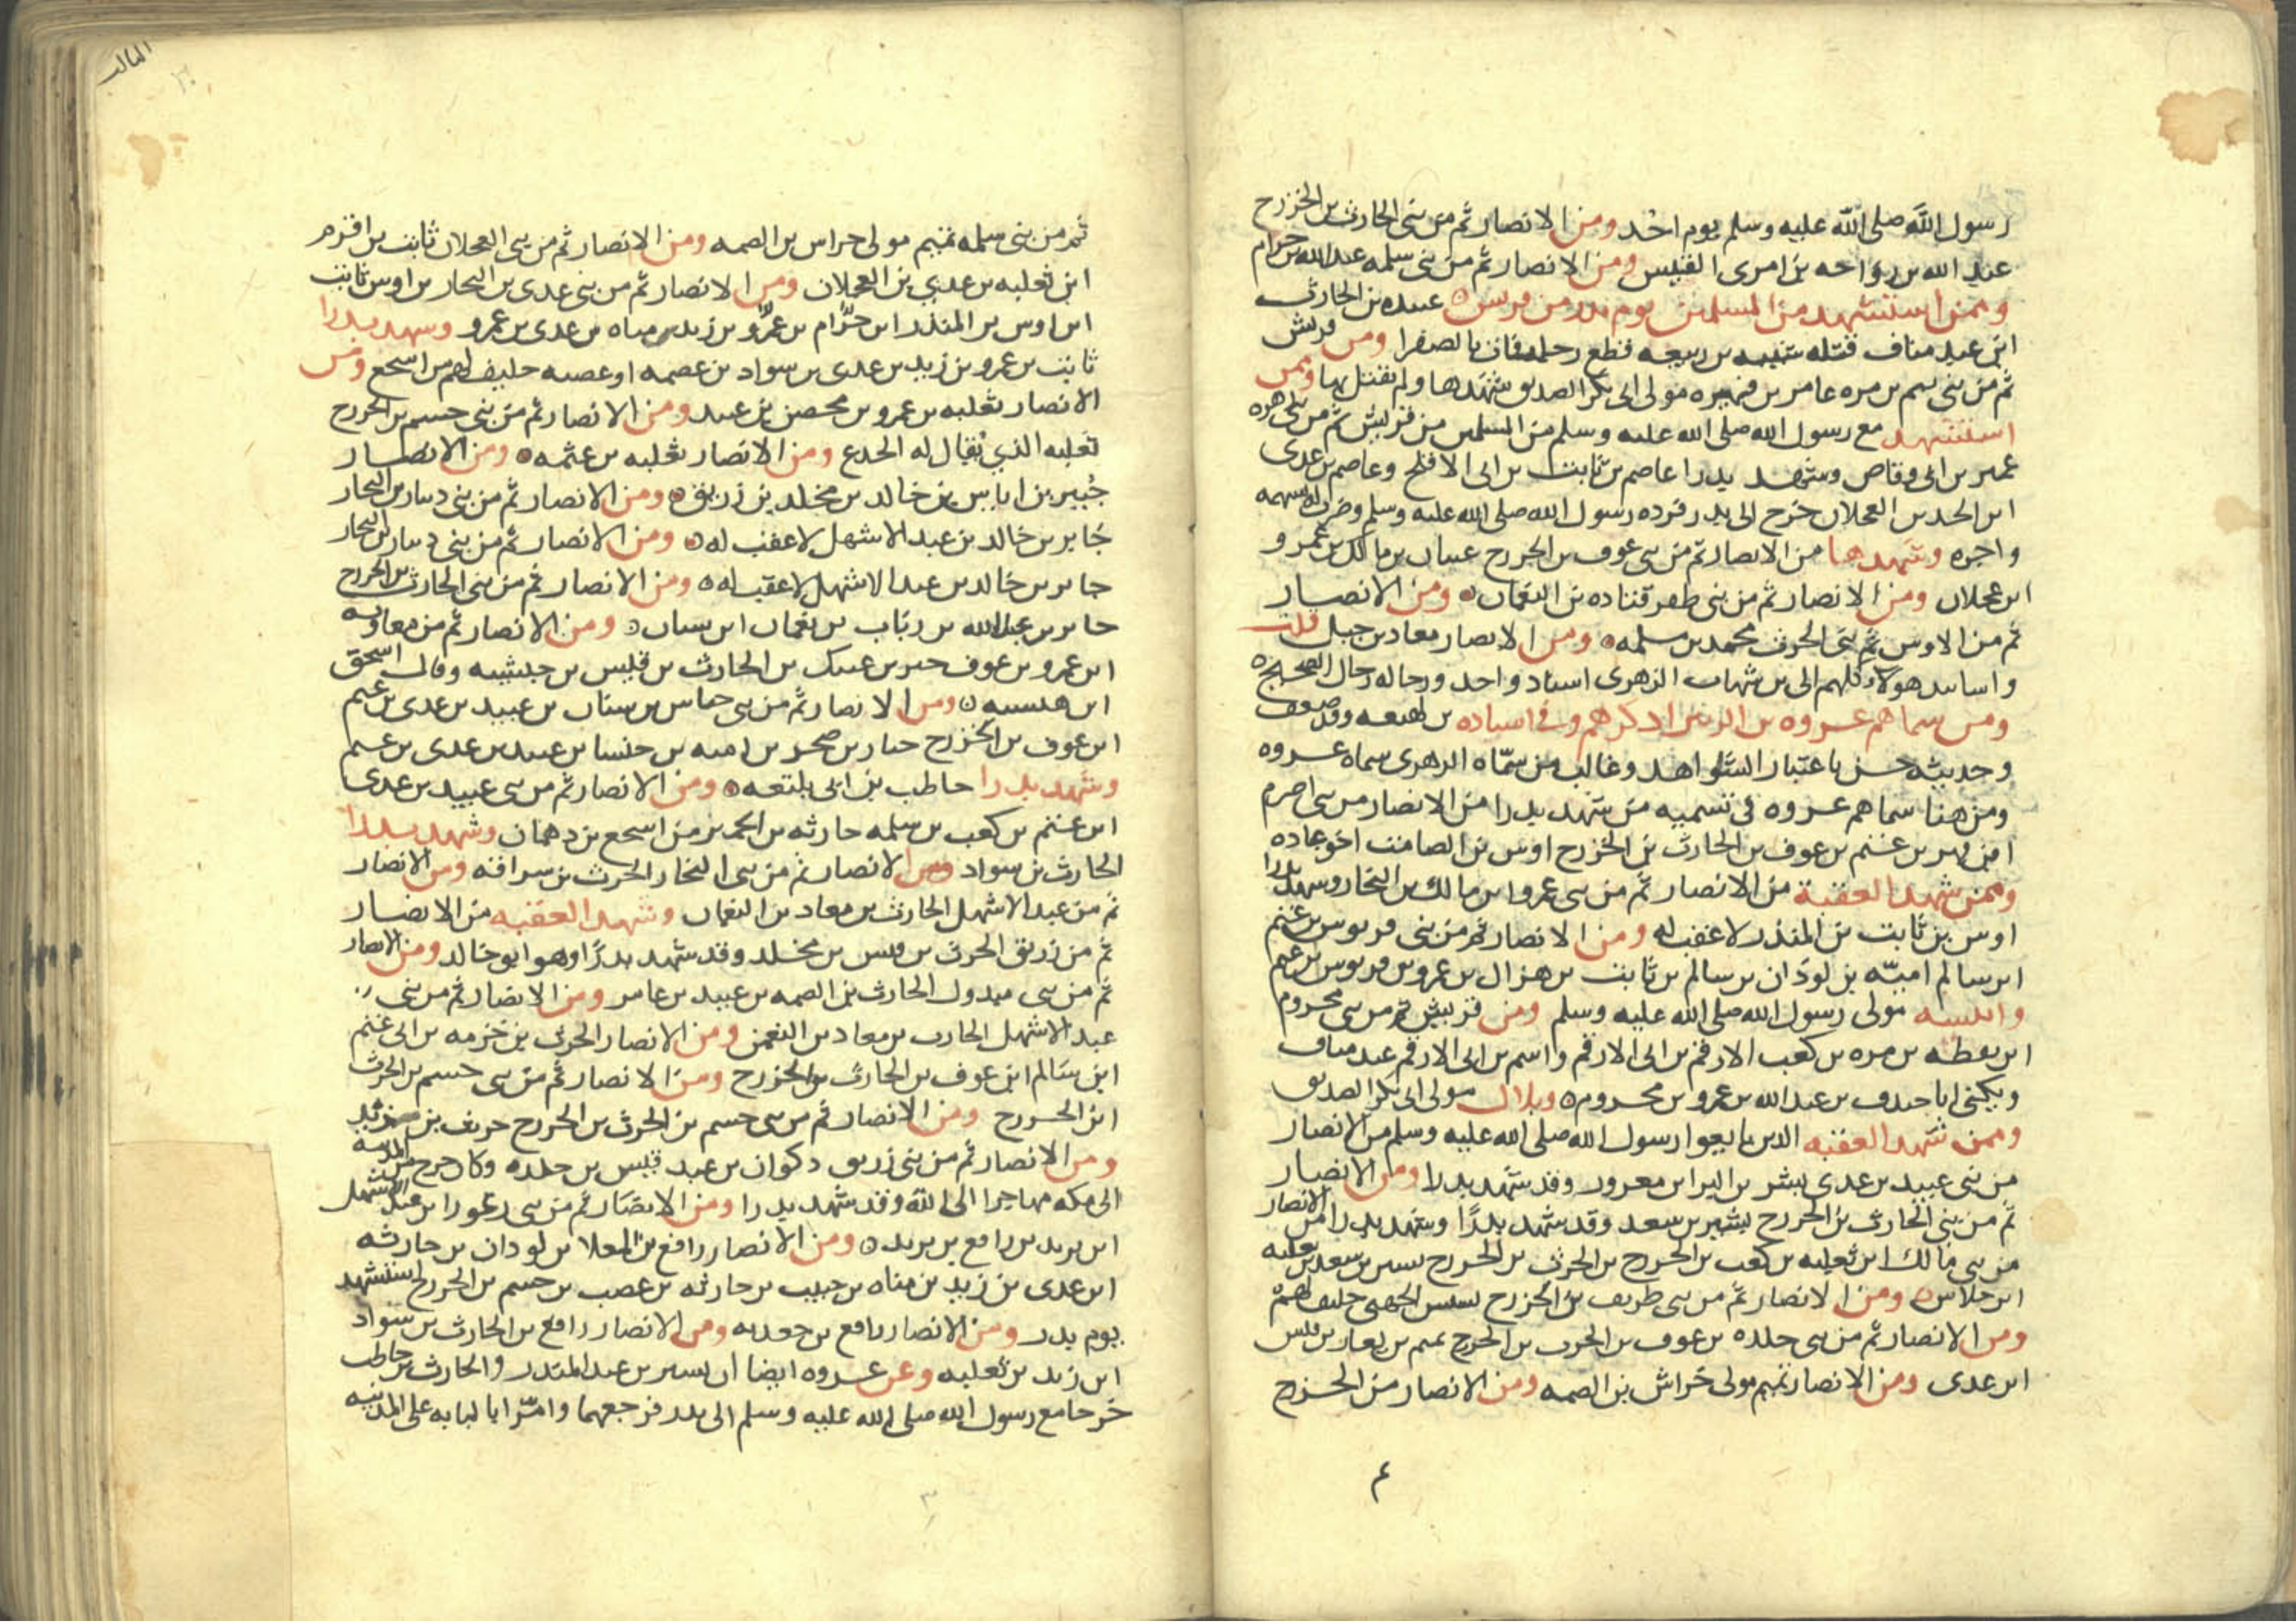 رسول الله صلى الله عليه وسلم يوم احد ومن الانصار ثم من بني الحارث بن الخزرج
عبد الله بن رواحه بن امرى القيس ومن الانصار ثم من بني سلمه عبد الله بن حرام
وممن استشهد من المسلمين يوم بدر من قريش عبيده بن الحارث
ابن عبد مناف قتله شيبه بن ربيعه قطع رحله فمات بالصفرا ومن قريش
ثم من بني تيم بن مره عامر بن فهيره مولى ابي بكر الصديق شهدها ولم يقتل بها وممن
استشهد مع رسول الله صلى الله عليه وسلم من المسلمين من قريش ثم من بني زهره
عمير بن ابي وقاص وشهد بدرا عاصم بن ثابت بن ابي الافلح وعاصم بن عدي
ابن الجد بن العجلان خرج الى بدر فرده رسول الله صلى الله عليه وسلم وضرب له بسهمه
واجره وشهدها من الانصار ثم من بني عوف بن الخزرج عتبان بن مالك بن عمرو
ابن عجلان ومن الانصار ثم من بني ظفر قتاده بن النعمان ومن الانصار
ثم من الاوس ثم بني الحرث محمد بن مسلمه ومن الانصار معاد بن جبل قلت
واسانيد هولاء كلهم الى بن شهاب الزهرى اسناد واحد ورجاله رجال الصحيح
ومن سماهم عروه بن الزبير اذكرهم وفي اسناده بن لهيعه وفد ضعف
وحديثه حسن باعتبار الشواهد وغالب من سماه الزهرى سماه عروه
ومن هنا سماهم عروه في تسميه من شهد بدرا من الانصار من بني اصرم
ابن فهر بن غنم بن عوف بن الحارث بن الخزرج اوس بن الصامت اخو عباده
وممن شهد العقبة من الانصار ثم من بني عمرو بن مالك بن النجار وشهد بدرا
اوس بن ثابت بن المنذر لا عقب له ومن الانصار ثم من بني قربوس بن غنم
ابن سالم اميه بن لوذان بن سالم بن ثابت بن هزال بن عمرو بن قربوس بن غنم
وانيسه مولى رسول الله صلى الله عليه وسلم ومن قريش ثم من بني مخزوم
ابن يقظه بن مره بن كعب الارقم بن ابي الارقم واسم بن ابي الارقم عبد مناف
ويكنى ابا جندب بن عبد الله بن عمرو بن مخزوم وبلال مولى ابي بكر الصديق
وممن شهد العقبه الذين بايعوا رسول الله صلى الله عليه وسلم من الانصار
من بني عبيد بن عدي بشر بن البرا بن معرور وقد شهد بدرا ومن الانصار
ثم من بني الحارث بن الخزرج بشير بن سعد وقد شهد بدرا وشهد بدرا من الانصار
من بني مالك ابن ثعلبه بن كعب بن الخزرج بن الحرث بن الخزرج بشير بن سعد بن ثعلبه
ابن خلاس ومن الانصار ثم من بني طريف بن الخزرج بسبس الجهني حليف لهم
ومن الانصار ثم من بني خلده بن عوف بن الحرث بن الخزرج تميم بن يعار بن قيس
ابن عدى ومن الانصار تميم مولى خراش بن الصمه ومن الانصار من الخزرج
٤
الثالث
ثم من بني سلمه تميم مولى خراس بن الصمه ومن الانصار ثم من بني العجلان ثابت بن اقرم
ابن ثعلبه بن عدي بن العجلان ومن الانصار ثم من بني عدى بن النجار بن اوس ثابت
ابن اوس بن المنذر ابن حرام بن عمرو بن زيد بن مناه بن عدى بن عمرو وشهد بدرا
ثابت بن عمرو بن زيد بن عدى بن سواد بن عصمه او عصيه حليف لهم من اشجع ومن
الانصار ثعلبه بن عمرو بن محصن بن عبيد ومن الانصار ثم من بني جشم بن الخزرج
ثعلبه الذي يقال له الجدع ومن الانصار ثعلبه بن عثمه ومن الانصار
جبير بن اياس بن خالد بن مخلد بن زريق ومن الانصار ثم من بني دينار بن النجار
جابر بن خالد بن عبد الاشهل لا عقب له ومن الانصار ثم من بني دينار بن النجار
جابر بن خالد بن عبد الاشهل لا عقب له ومن الانصار ثم من بني الحارث بن الخزرج
جابر بن عبد الله بن رياب بن نعمان ابن سنان ومن الانصار ثم من معاويه
ابن عمرو بن عوف جبر بن عتيك بن الحارث بن قيس بن حبشيه وقال اسحق
ابن هيشه ومن الانصار ثم من بني خناس بن سنان بن عبيد بن عدى بن غنم
ابن عوف بن الخزرج جبار بن صخر بن اميه بن خنسا بن عبيد بن عدى بن غنم
وشهد بدرا حاطب بن ابي بلتعه ومن الانصار ثم من بني عبيد بن عدى
ابن غنم بن كعب بن سلمه حارثه بن الحمير من اشجع بن دهمان وشهد بدرا
الحارث بن سواد ومن الانصار ثم من بني النجار الحرث بن سراقه ومن الانصار
ثم من عبد الاشهل الحارث بن معاد بن النعمان وشهد العقبه من الانصار
ثم من زريق الحرث بن قيس بن مخلد وقد شهد بدرا وهو ابو خالد ومن الانصار
ثم من بني مبذول الحارث بن الصمه بن عبيد بن عامر ومن الانصار ثم من بني
عبد الاشهل الحارث بن معاد بن النعمن ومن الانصار الحرث بن خزمه بن ابي غنم
ابن سالم ابن عوف بن الحارث بن الخزرج ومن الانصار ثم من بني جشم بن الحرث
ابن الخزرج ومن الانصار ثم من بني جشم بن الحرث بن الخزرج حريث بن زيد
ومن الانصار ثم من بني زريق ذكوان بن عبد قيس بن خلده وكان خرج من المدينه
الى مكه مهاجرا الى الله وقد شهد بدرا ومن الانصار ثم من بني زعورا بن عبد الاشهل
ابن يزيد بن رافع بن يزيد ومن الانصار رافع بن المعلا بن لودان بن حارثه
ابن عدى بن زيد بن مناه بن حبيب بن حارثه بن عصب بن جشم بن الخزرج استشهد
يوم بدر ومن الانصار رافع بن جعدبه ومن الانصار رافع بن الحارث بن سواد
ابن زيد بن ثعلبه وعن عروه ايضا ان بشير بن عبد المنذر والحارث بن حاطب
خرجا مع رسول الله صلى الله عليه وسلم الى بدر فرجعهما وامر ابا لبابه على المدينه